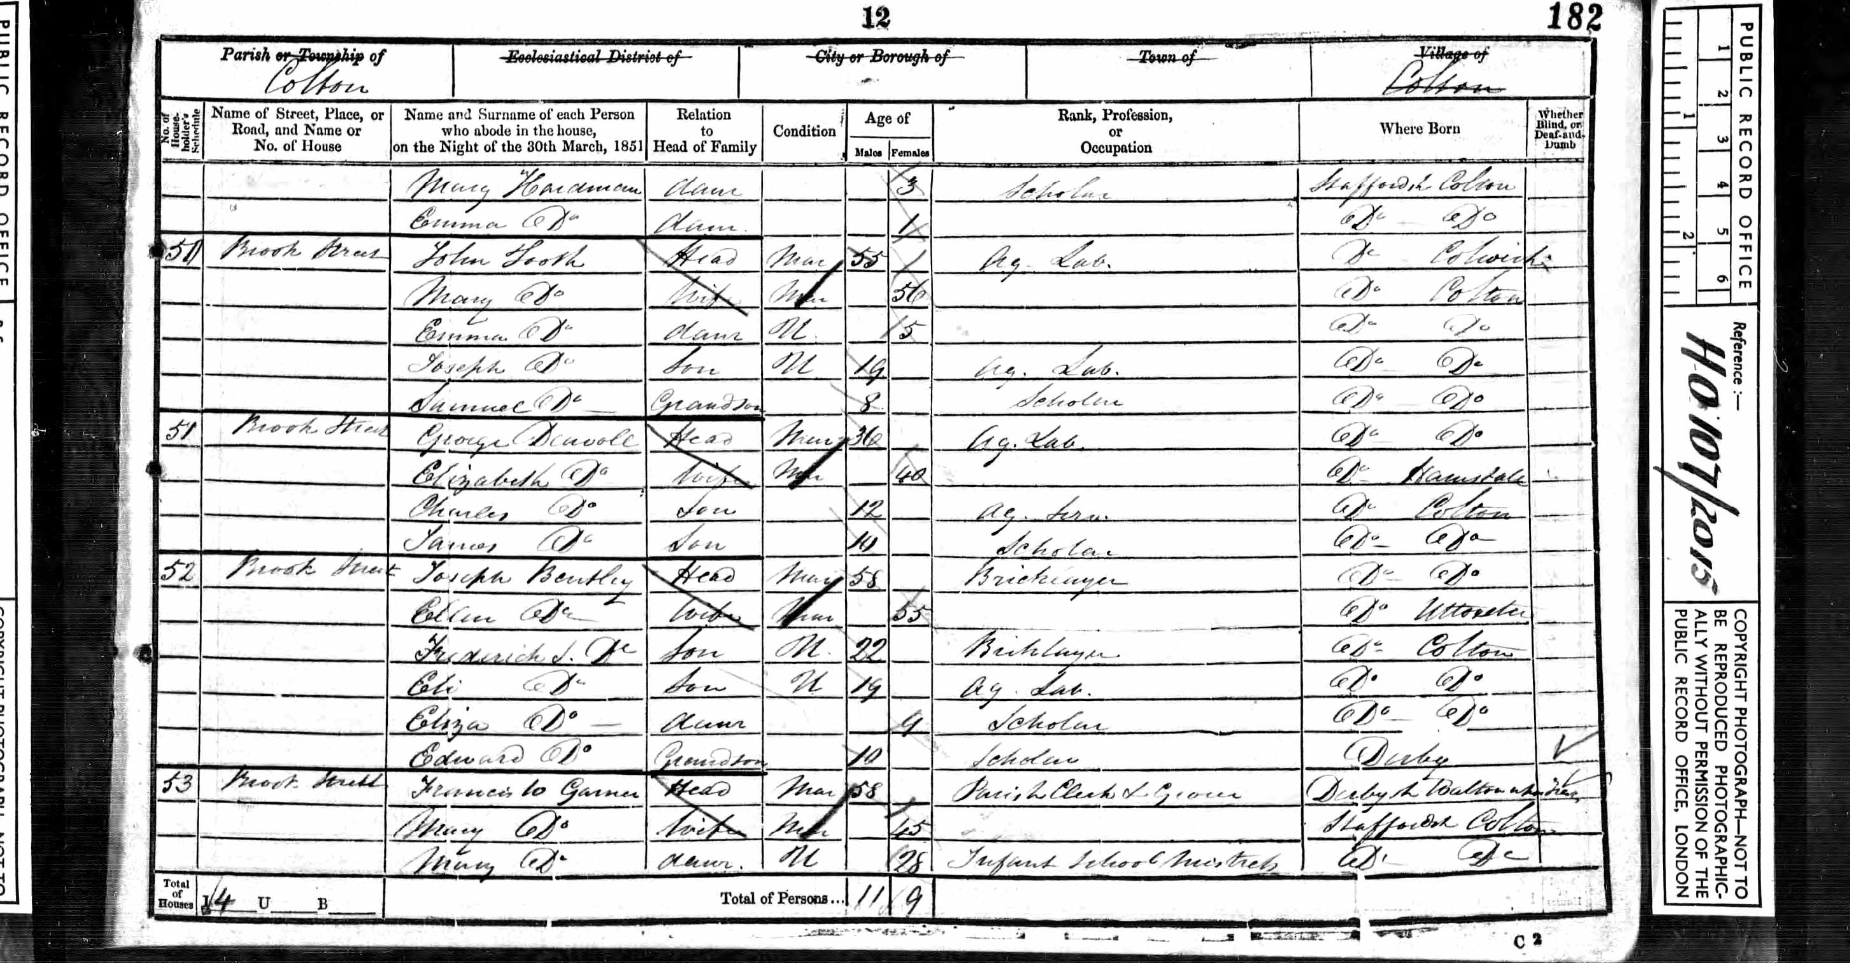 12
182
Parish or Township of
Ecclesiastical District of
City or Borough of
Town of
Village of
Colton
Colton
No. of House-holder's Schedule
Name of Street, Place, or Road, and Name or No. of House
Name and Surname of each Person who abode in the house, on the Night of the 30th March, 1851
Relation to Head of Family
Condition
Age of
Males Females
Rank, Profession, or Occupation
Where Born
Whether Blind, or Deaf-and-Dumb
Mary Hardman daur 3 Scholar Staffordsh Colton
Emma Do daur 1 Do Do
50 Brook Street John Head Mar 55 Ag. Lab. Do Colwich
Mary Do Wife Mar 56 Do Colton
Emma Do daur U 15 Do Do
Joseph Do Son U 19 Ag. Lab. Do Do
Samuel Do Grandson 8 Scholar Do Do
51 Brook Street George Deavall Head Mar 36 Ag. Lab. Do Do
Elizabeth Do Wife Mar 40 Do Hamstall
Charles Do Son 12 Ag. Serv. Do Colton
James Do Son 10 Scholar Do Do
52 Brook Street Joseph Bentley Head Mar 58 Bricklayer Do Do
Ellen Do Wife Mar 55 Do Uttoxeter
Frederick J. Do Son U 22 Bricklayer Do Colton
Eli Do Son U 19 Ag. Lab. Do Do
Eliza Do daur 9 Scholar Do Do
Edward Do Grandson 10 Scholar Derby
53 Brook Street Francis Garner Head Mar 58 Parish Clerk & Grocer Derbysh Walton upon Trent
Mary Do Wife Mar Staffordsh Colton
Mary Do daur. U 28 Infant School Mistress Do Do
Total of Houses I 4 U B
Total of Persons... 11 9
C 2
PUBLIC RECORD OFFICE
1 2 3 4 5 6
1 2
Reference:—
HO 107/2015
COPYRIGHT PHOTOGRAPH—NOT TO
BE REPRODUCED PHOTOGRAPHIC-
ALLY WITHOUT PERMISSION OF THE
PUBLIC RECORD OFFICE, LONDON
PUBLIC RECORD OFFICE